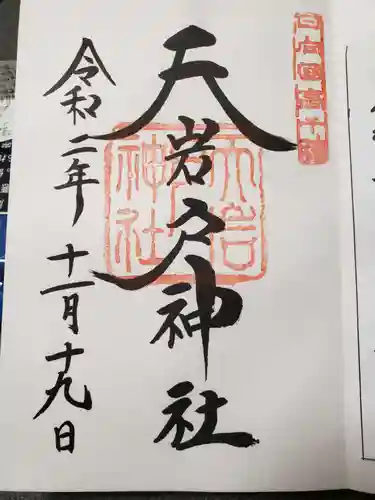 日向国高千穂
天岩戸神社
天岩戸神社
令和二年十一月十九日